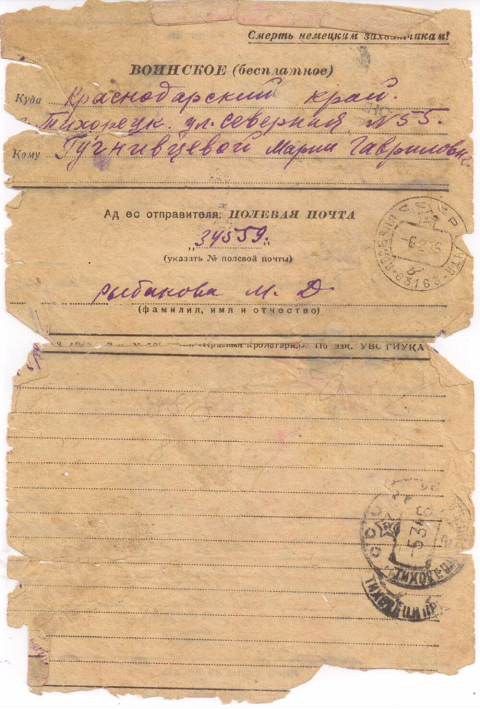 Смерть немецким захватчикам!
ВОИНСКОЕ (бесплатное)
Куда Краснодарский край.
г. Тихорецк. ул. Северная N 55.
Кому Гугнивцевой Марии Гавриловне
Ад ес отправителя: ПОЛЕВАЯ ПОЧТА
„34559."
(указать № полевой почты)
Рыбакова М. Д
(фамилия, имя и отчество)
«Красный пролетарий» По зак. УВС ГИУКА
СССР
63163
СССР
ТИХОРЕЦ
ТИХОРЕЦК